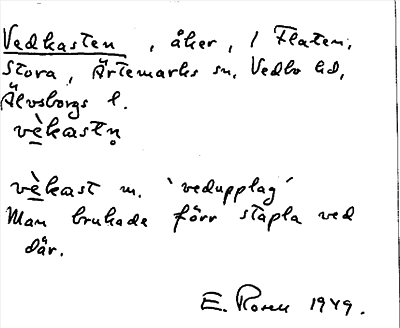 Vedkasten, åker, i Flaten,
Stora, Ärtemarks sn. Vedbo hd,
Älvsborgs l.
vὲkastn̥
vὲkast m. 'vedupplag'
Man brukade förr stapla ved
där.
E. Rosen 1949.